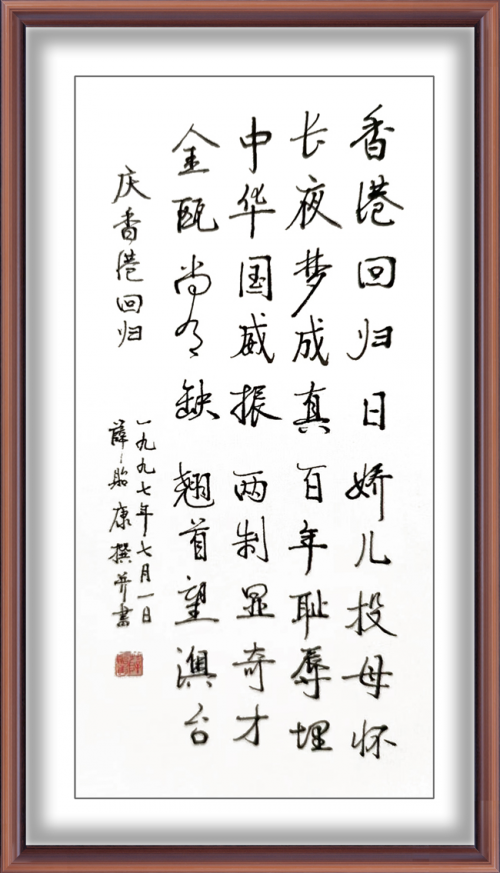 香港回归日娇儿投母怀
长夜梦成真百年耻辱埋
中华国威振两制显奇才
金瓯尚有缺翘首望澳台
庆香港回归
一九九七年七月一日
薛贻康撰并书